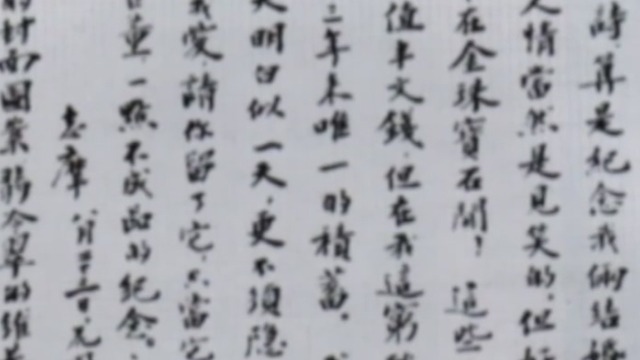 詩,算是紀念我倆結婚
人情當然是見笑的,但如
在金珠寶石間!這些
值半文錢,但在我這窮
三年來唯一的積蓄。
天明白似一天,更不須隱
我愛,請你留了它,只當它
重,一點不成品的紀念。
志摩 八月廿三日,
的封面圖案